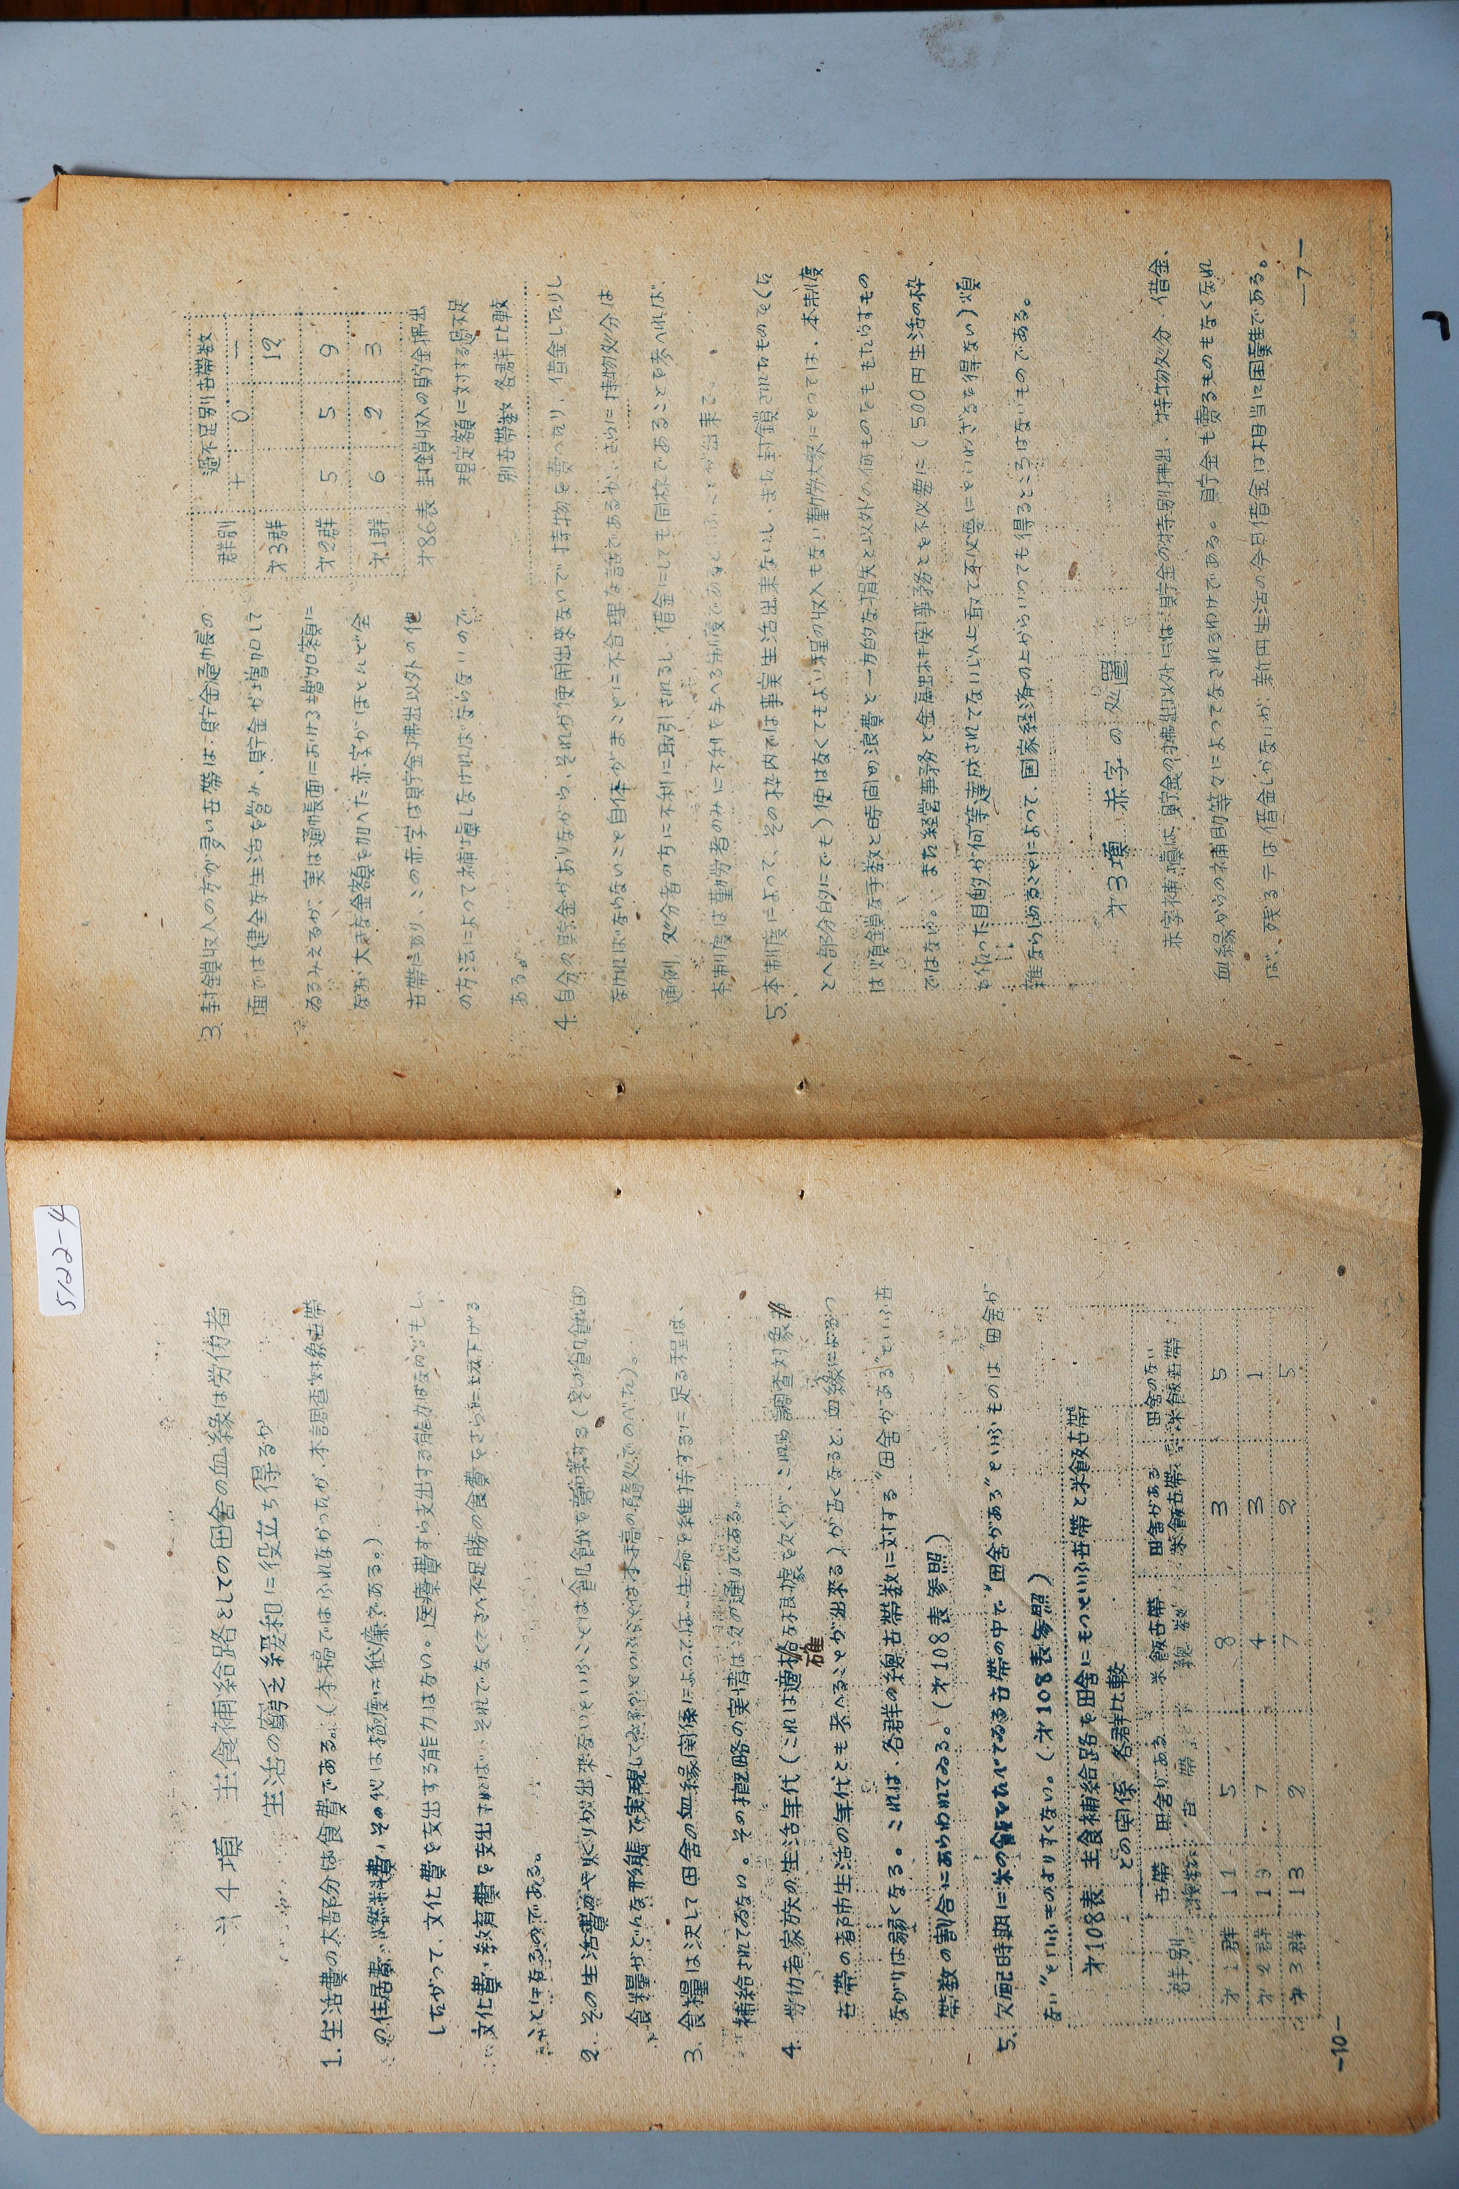 5122-4
オ4項 主食補給路としての田舎の血縁は労仂者
生活の窮乏緩和に役立ち得るか
1. 生活費の大部分は食費である。(本稿ではふれなかったが、本調査対象世帯
の住居費、燃料費、その他は極度に低廉である。)
したがって、文化費を支出する能力はない。医療費すら支出する能力は
文化費、教育費を支出すれば、それでなくさへ不足勝の食費をさらに
ことになるのである。
2. その生活費のやりくりが出来ないといふことは飢餓を意味する
食糧が
3. 食糧は決して田舎の血縁関係によっては、生命を維持するに足る程は、
補給されてゐない。その概略の実情は次の通りである。
4. 労仂者家族の生活年代(これは適格な根拠を欠くが、これを調査対象
確
世帯の都市生活の年代とも考へることが出来る)が古くなると、血縁によるつ
ながりは弱くなる。これは、各群の総世帯数に対する"田舎がある"といふ世
帯数の割合にあらわれてゐる。(オ108表参照)
5. 欠配時期に米の飯をたべてゐる世帯の中で"田舎がある"といふものは"田舎が
ない"といふものよりすくない。(オ108表参照)
オ108表 主食補給路を田舎にもつといふ世帯と米飯世帯
との関係 各群比較
群別 世帯総数 田舎がある世帯 米飯世帯総数 田舎がある米飯世帯 田舎のない米飯世帯
オ1群 11 5 8 3 5
オ2群 19 7 4 3 1
オ3群 13 2 7 2 5
—10—
3. 封鎖収入の方が多い世帯は、貯金通帳の
面では健全な生活を営み、貯金が増加して
ゐるみえるが、実は通帳面における増加額に
なほ大きな金額を加へた赤字がほとんど全
世帯にあり、この赤字は貯金払出以外の他
の方法によって補填しなければならないので
ある。
群別 過不足別世帯数
+ 0 −
オ3群 12
オ2群 5 5 9
オ1群 6 2 3
オ86表 封鎖収入の貯金払出
規定額に対する過不足
別世帯数 各群比較
4. 自分の貯金がありながら、それが使用出来ないで持物を売ったり、借金したりし
なければならないこと自体がまことに不合理な話であるが、さらに持物処分は
通例、処分者の方に不利に取引されるし、借金にしても同様であることを考へれば、
本制度は勤労者のみに不利を与へる制度であるといふことが出来る。
5. 本制度によって、その枠内では事実生活出来ないし、また封鎖されたもの
とへ部分的にでも)使はなくてもよい程の収入もない勤労大衆にとっては、本制度
は煩鎖な手数と時間の浪費と一方的な損失と以外の何ものをももたらすもの
ではない。また経営事務と金融機関事務とを不必要に(500円生活の枠、
といった目的が何等達成されてない以上敢て不必要にといわざるを得ない)煩
雑ならしめることによって、国家経済の上からいっても得るところはないものである。
オ3項 赤字の処置
赤字補填は、貯金の払出以外には、貯金の特別払出、持物処分、借金、
血縁からの補助等々によってなされるわけである。貯金も売るものもなくなれ
ば、残る手は借金しかないが、新円生活の今日借金は相当に困難である。
—7—